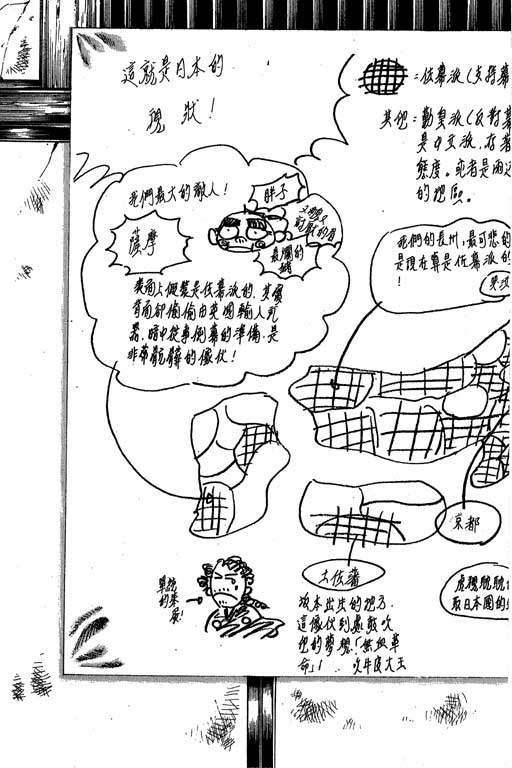 這就是日本的
現狀！
＝佐幕派（支持幕
其他＝勤皇派（反對幕
是中立派，在著
態度。或者是兩边
的地區。
我們最大的敵人！
胖子
薩摩
又聰又
討厭的眉
最爛的
表面上假裝是佐幕派的，其實
背面卻偷偷由英國輸入武
器，暗中從事倒幕的準備，是
非常骯髒的傢伙！
我們的長州，最可悲的
是現在算是佐幕派的
京都
土佐藩
單純
的笨
蛋！
坂本出生的地方。
這傢伙到處鼓吹
他的夢想「無血革
命」！ 吹牛皮大王
虎視眈眈
取日本國的